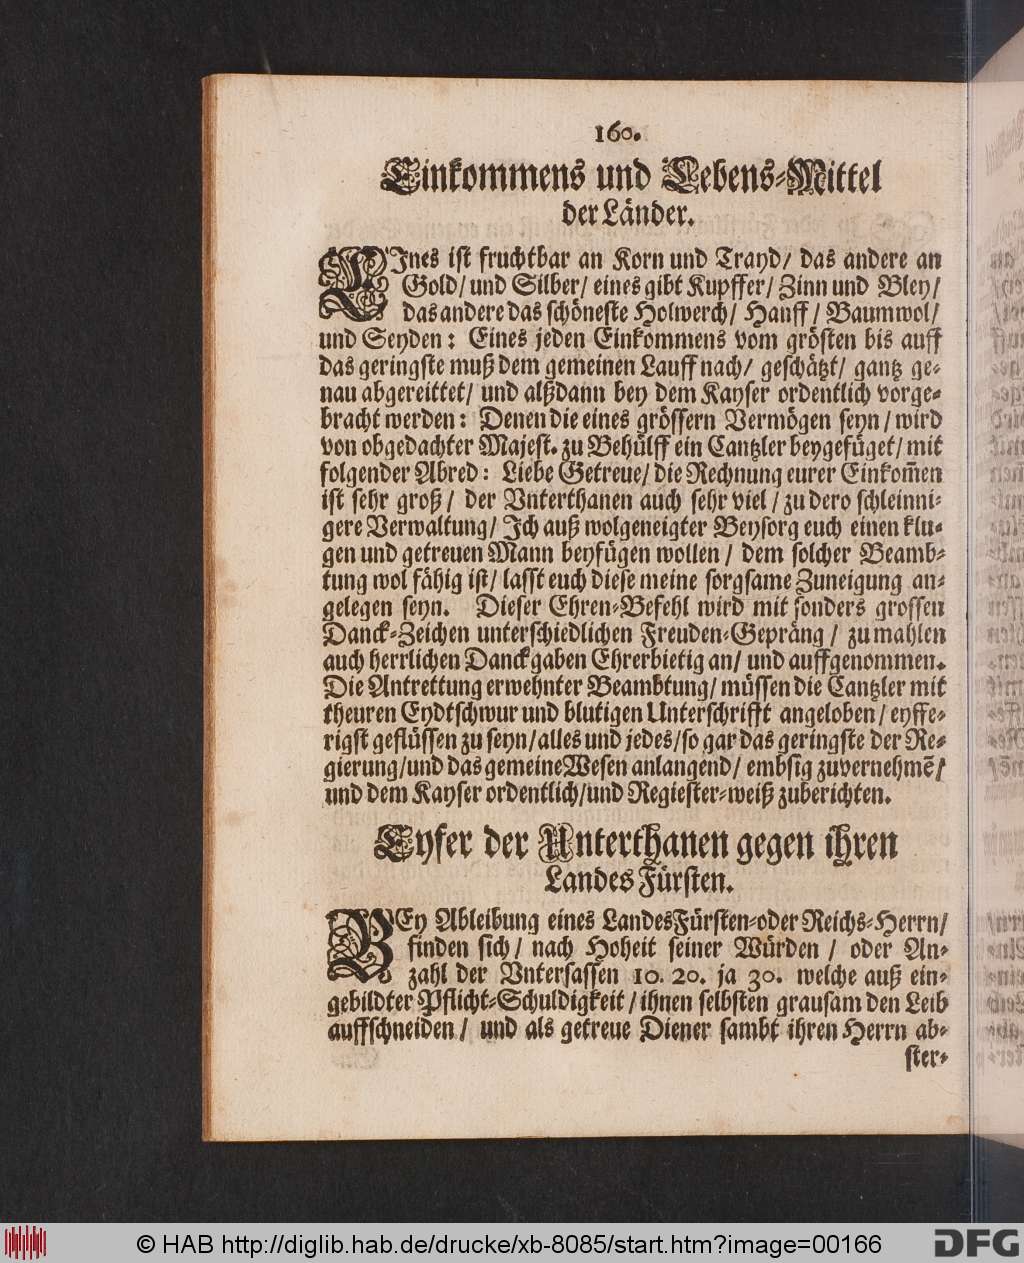 160.
Einkommens und Lebens-Mittel
der Länder.
EInes ist fruchtbar an Korn und Trayd/ das andere an
Gold/ und Silber/ eines gibt Kupffer/ Zinn und Bley/
das andere das schöneste Holwerch/ Hanff/ Baumwol/
und Seyden: Eines jeden Einkommens vom grösten bis auff
das geringste muß dem gemeinen Lauff nach/ geschätzt/ gantz ge-
nau abgereittet/ und alßdann bey dem Kayser ordentlich vorge-
bracht werden: Denen die eines grössern Vermögen seyn/ wird
von obgedachter Majest. zu Behülff ein Cantzler beygefüget/ mit
folgender Abred: Liebe Getreue/ die Rechnung eurer Einkom̃en
ist sehr groß/ der Unterthanen auch sehr viel/ zu dero schleinni-
gere Verwaltung/ Ich auß wolgeneigter Beysorg euch einen klu-
gen und getreuen Mann beyfügen wollen/ dem solcher Beamb-
tung wol fähig ist/ lasst euch diese meine sorgsame Zuneigung an-
gelegen seyn. Dieser Ehren-Befehl wird mit sonders grossen
Danck-Zeichen unterschiedlichen Freuden-Gepräng/ zu mahlen
auch herrlichen Danckgaben Ehrerbietig an/ und auffgenommen.
Die Antrettung erwehnter Beambtung/ müssen die Cantzler mit
theuren Eydtschwur und blutigen Unterschrifft angeloben/ eyffe-
rigst geflüssen zu seyn/ alles und jedes/ so gar das geringste der Re-
gierung/ und das gemeine Wesen anlangend/ embsig zuvernehmē/
und dem Kayser ordentlich/ und Regiester-weiß zuberichten.
Eyfer der Unterthanen gegen ihren
Landes Fürsten.
BEy Ableibung eines LandesFürsten-oder Reichs-Herrn/
finden sich/ nach Hoheit seiner Würden/ oder An-
zahl der Untersassen 10. 20. ja 30. welche auß ein-
gebildter Pflicht-Schuldigkeit/ ihnen selbsten grausam den Leib
auffschneiden/ und als getreue Diener sambt ihren Herrn ab-
ster-
© HAB http://diglib.hab.de/drucke/xb-8085/start.htm?image=00166
DFG